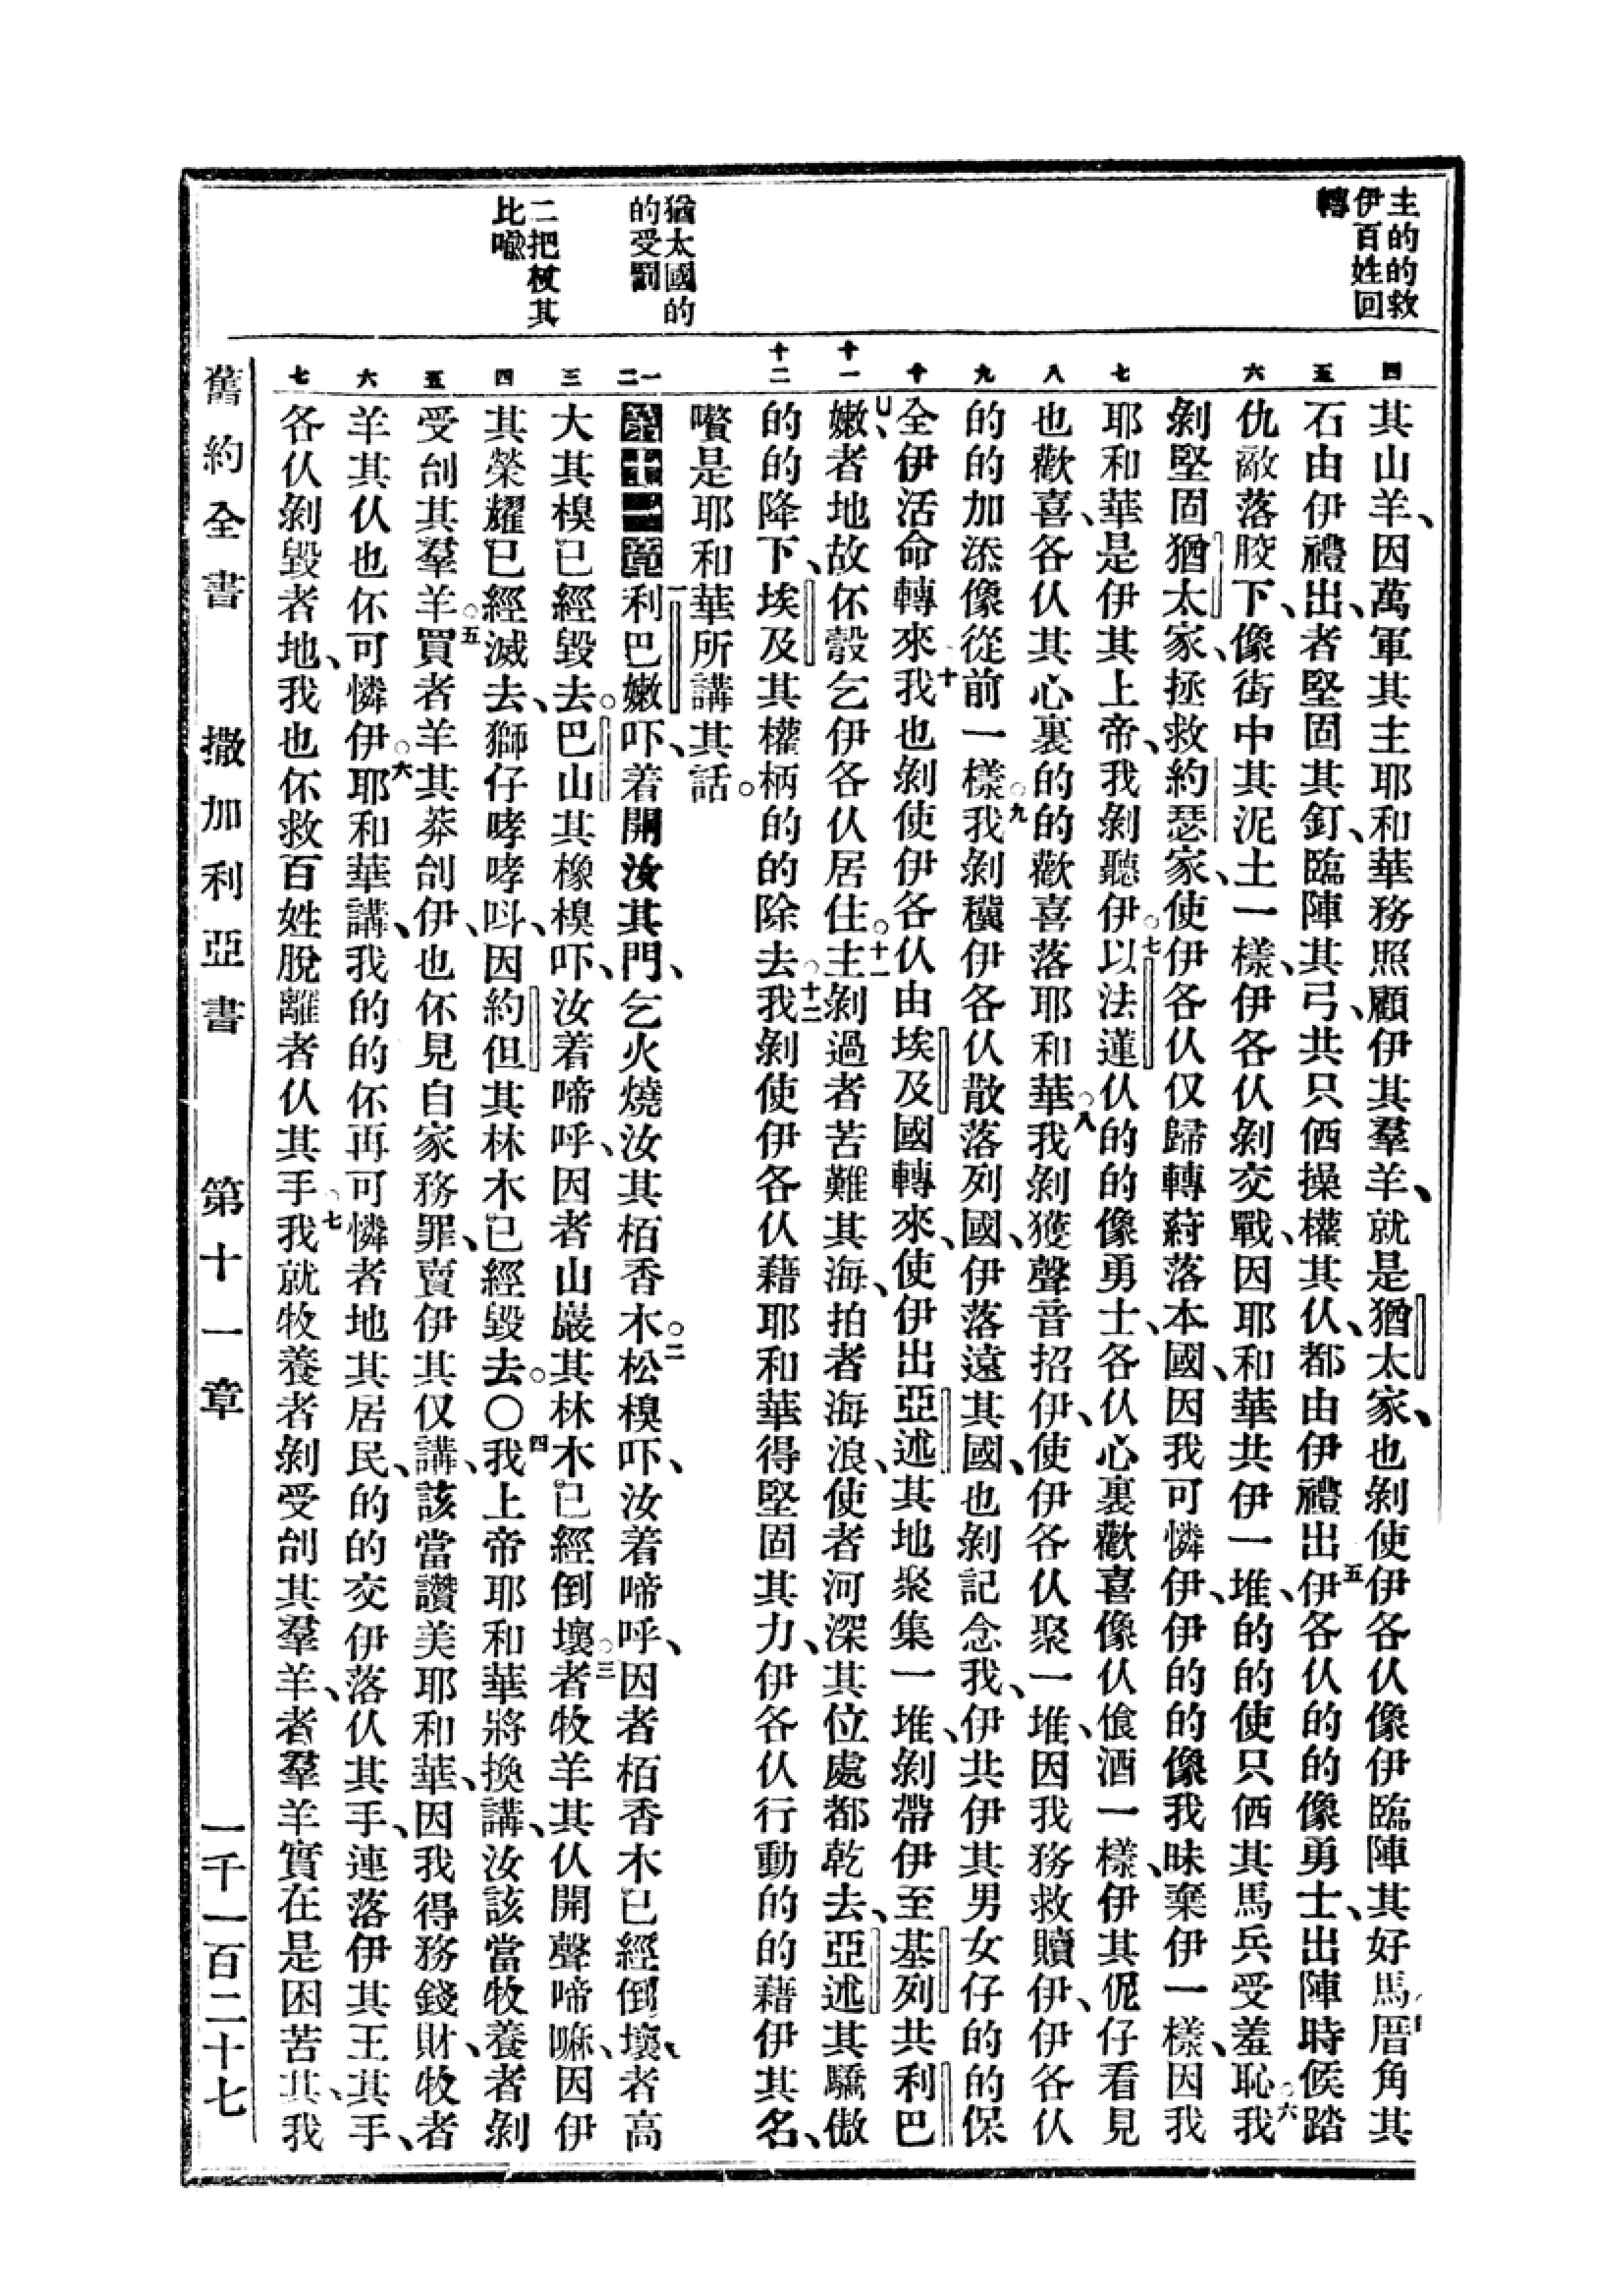 主的的救
伊百姓回
轉
猶太國的
的受罰
二把杖其
比喻
四
五
六
七
八
九
十
十一
十二
一二
三
四
五
六
七
其山羊、因萬軍其主耶和華務照顧伊其羣羊、就是猶太家、也剝使伊各仈像伊臨陣其好馬厝角其
石由伊禮出、者堅固其釘、臨陣其弓、共只𠳝操權其仈、都由伊禮出五伊各仈的的像勇士、出陣時候踏
仇敵落胶下、像街中其泥土一樣、伊各仈剝交戰、因耶和華共伊一堆、的的使只𠳝其馬兵受羞恥○六我
剝堅固猶太家、拯救約瑟家、使伊各仈仅歸轉蒔落本國、因我可憐伊、伊的的像我昧棄伊一樣、因我
耶和華是伊其上帝、我剝聽伊○七以法蓮仈的的像勇士、各仈心裏歡喜像仈飮酒一樣、伊其伲仔看見
也歡喜、各仈其心裏的的歡喜落耶和華○八我剝獲聲音招伊、使伊各仈聚一堆、因我務救贖伊、伊各仈
的的加添像從前一樣○九我剝穬伊各仈散落列國、伊落遠其國、也剝記念我、伊共伊其男女仔的的保
全伊活命轉來十我也剝使伊各仈由埃及國轉來、使伊出亞述其地聚集一堆、剝帶伊至基列共利巴
嫩、者地故伓彀乞伊各仈居住○十一主剝過者苦難其海、拍者海浪、使者河深其位處都乾去、亞述其驕傲
的的降下、埃及其權柄的的除去○十二我剝使伊各仈藉耶和華得堅固其力、伊各仈行動的的藉伊其名、
嚽是耶和華所講其話。
第十一章一利巴嫩吓、着開汝其門、乞火燒汝其栢香木○二松模吓、汝着啼呼、因者栢香木已經倒壞、者高
大其模已經毀去。巴山其橡模吓、汝着啼呼、因者山巖其林木已經倒壞○三者牧羊其仈開聲啼嘛、因伊
其榮耀已經滅去、獅仔哮哮呌、因約但其林木已經毀去。〇四我上帝耶和華將換講、汝該當牧養者剝
受刣其羣羊○五買者羊其莽刣伊、也伓見自家務罪、賣伊其仅講、該當讚美耶和華、因我得務錢財、牧者
羊其仈也伓可憐伊○六耶和華講、我的的伓再可憐者地其居民、的的交伊落仈其手、連落伊其王其手、
各仈剝毀者地、我也伓救百姓脫離者仈其手○七我就牧養者剝受刣其羣羊、者羣羊實在是困苦其、我
舊約全書 撒加利亞書 第十一章 一千一百二十七